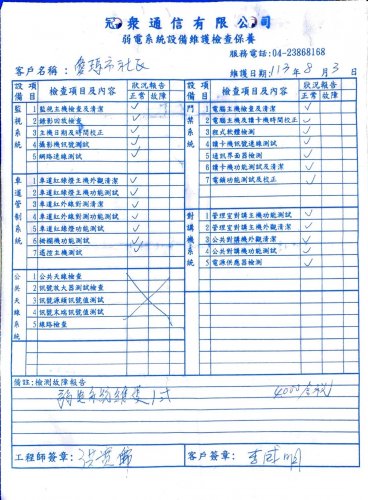 冠眾通信有限公司
弱電系統設備維護檢查保養
服務電話:04-23868168
客戶名稱:
維護日期:113年8月3日
設備項目 檢查項目及內容 狀況報告 正常 故障
監視系統
1 監視主機檢查及清潔 ✓
2 錄影回放檢查 ✓
3 主機日期及時間校正 ✓
4 攝影機訊號測試 ✓
5 網路連線測試 ✓
車道管制系統
1 車道紅綠燈主機外觀清潔 ✓
2 車道紅綠燈主機功能測試 ✓
3 車道紅外線對測清潔 ✓
4 車道紅外線對測功能測試 ✓
5 車道紅綠燈功能測試 ✓
6 柵欄機功能測試 ✓
7 遙控主機測試 ✓
公共天線系統
1 公共天線檢查
2 訊號放大器測試檢查
3 訊號源頭訊號值測試
4 訊號末端訊號值測試
5 線路檢查
設備項目 檢查項目及內容 狀況報告 正常 故障
門禁系統
1 電腦主機檢查及清潔 ✓
2 電腦主機及讀卡機時間校正 ✓
3 程式軟體檢測 ✓
4 讀卡機訊號測試 ✓
5 通訊界面器檢測 ✓
6 讀卡機功能測試及清潔 ✓
7 電鎖功能測試及校正 ✓
對講機系統
1 管理室對講主機功能測試 ✓
2 管理室對講主機外觀清潔 ✓
3 公共對講機外觀清潔 ✓
4 公共對講機功能測試 ✓
5 電源供應器檢測 ✓
備註:檢測故障報告
弱電系統維護1式 4000含稅
工程師簽章:
客戶簽章: